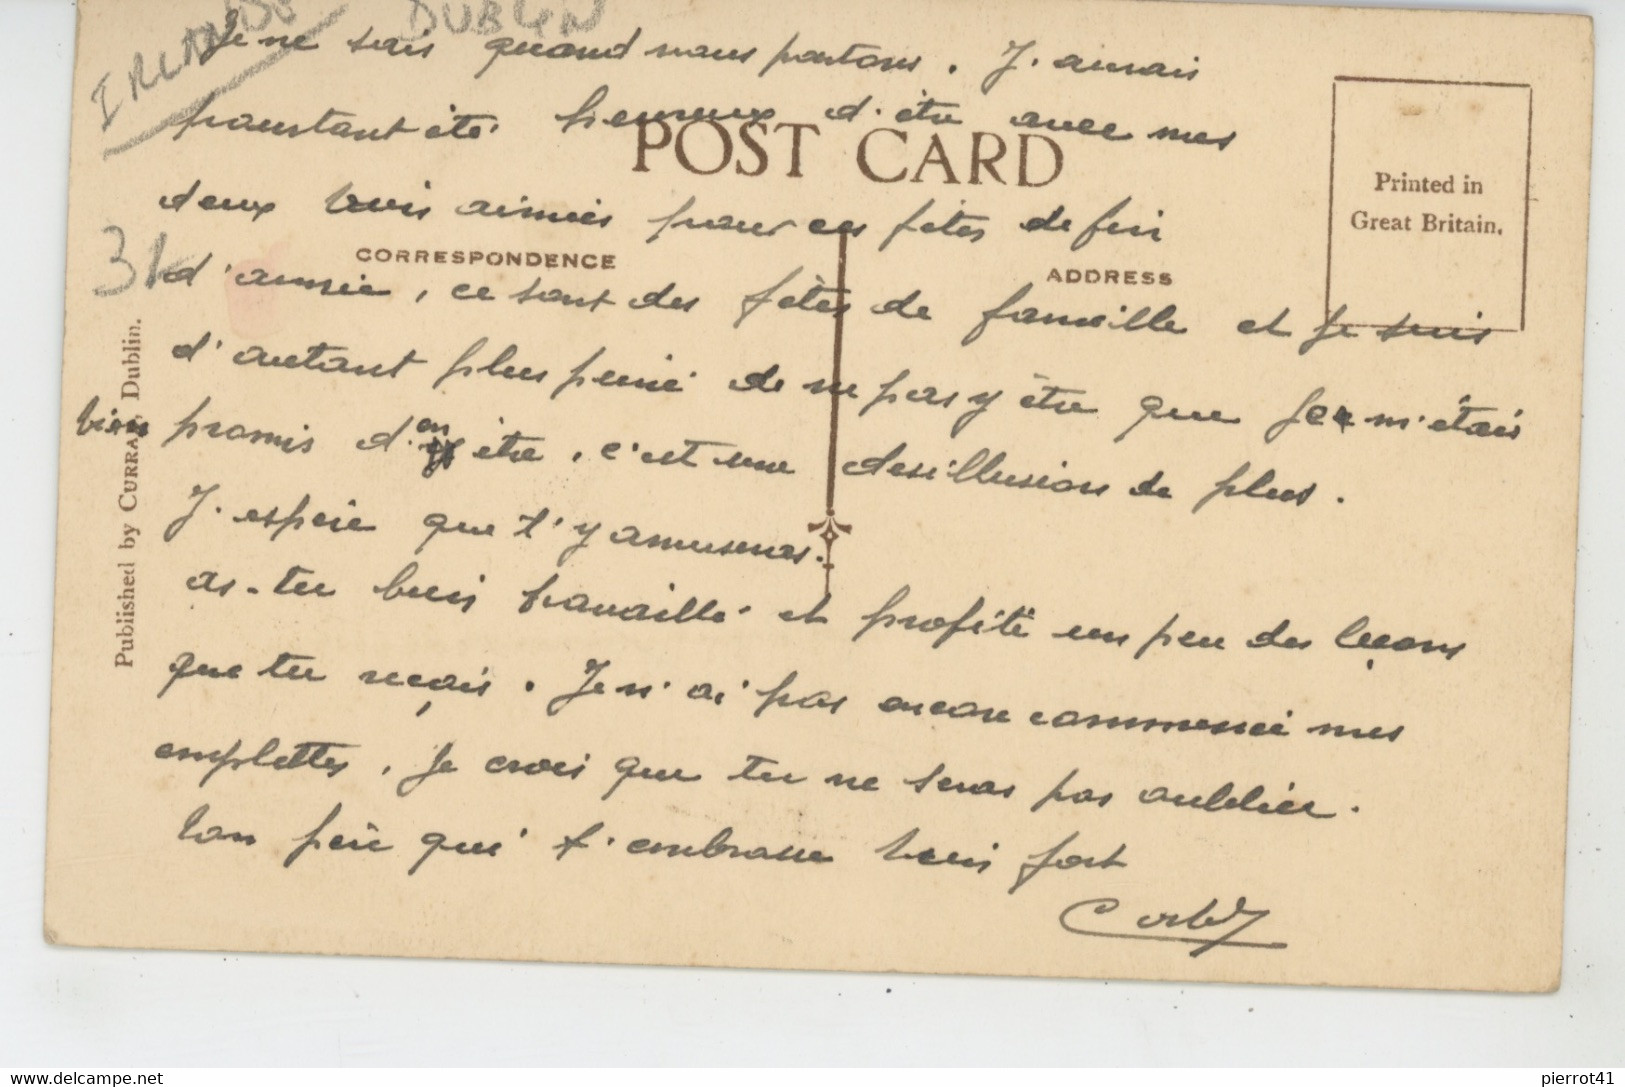 IRLANDE DUBLIN
Je ne sais quand nous partons. J'aurais
pourtant été heureux d'être avec mes
POST CARD
Printed in
Great Britain.
deux bien aimées pour ces fêtes de fin
CORRESPONDENCE
ADDRESS
31
d'année, ce sont des fêtes de famille et je suis
d'autant plus peiné de ne pas y être que je m'étais
bien promis d'en être, c'est une desillusion de plus.
J'espère que t'y amuseras.
as-tu bien travaillé et profité un peu des leçons
que tu reçois. Je n'ai pas encore commencé mes
emplettes, je crois que tu ne seras pas oubliée.
Ton père qui t'embrasse bien fort
Published by CURRAN, Dublin.
www.delcampe.net
pierrot41